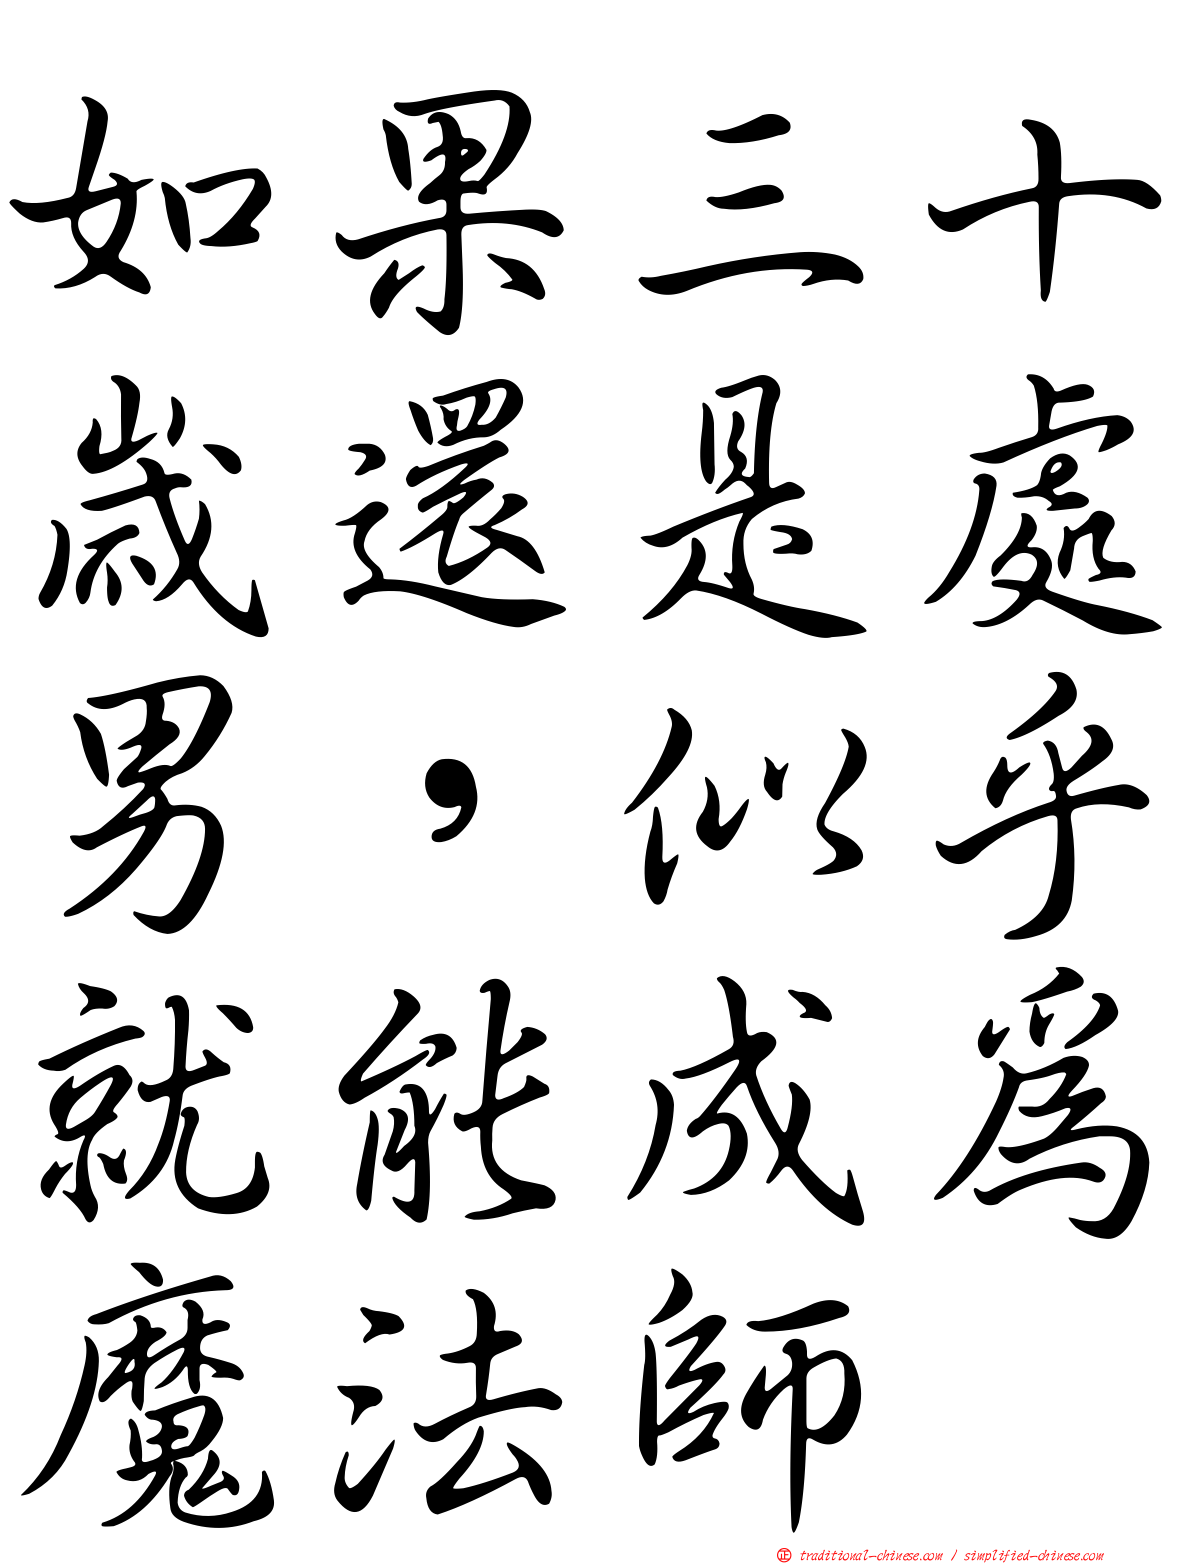 如果三十
歲還是處
男，似乎
就能成爲
魔法師
正 traditional-chinese.com / simplified-chinese.com